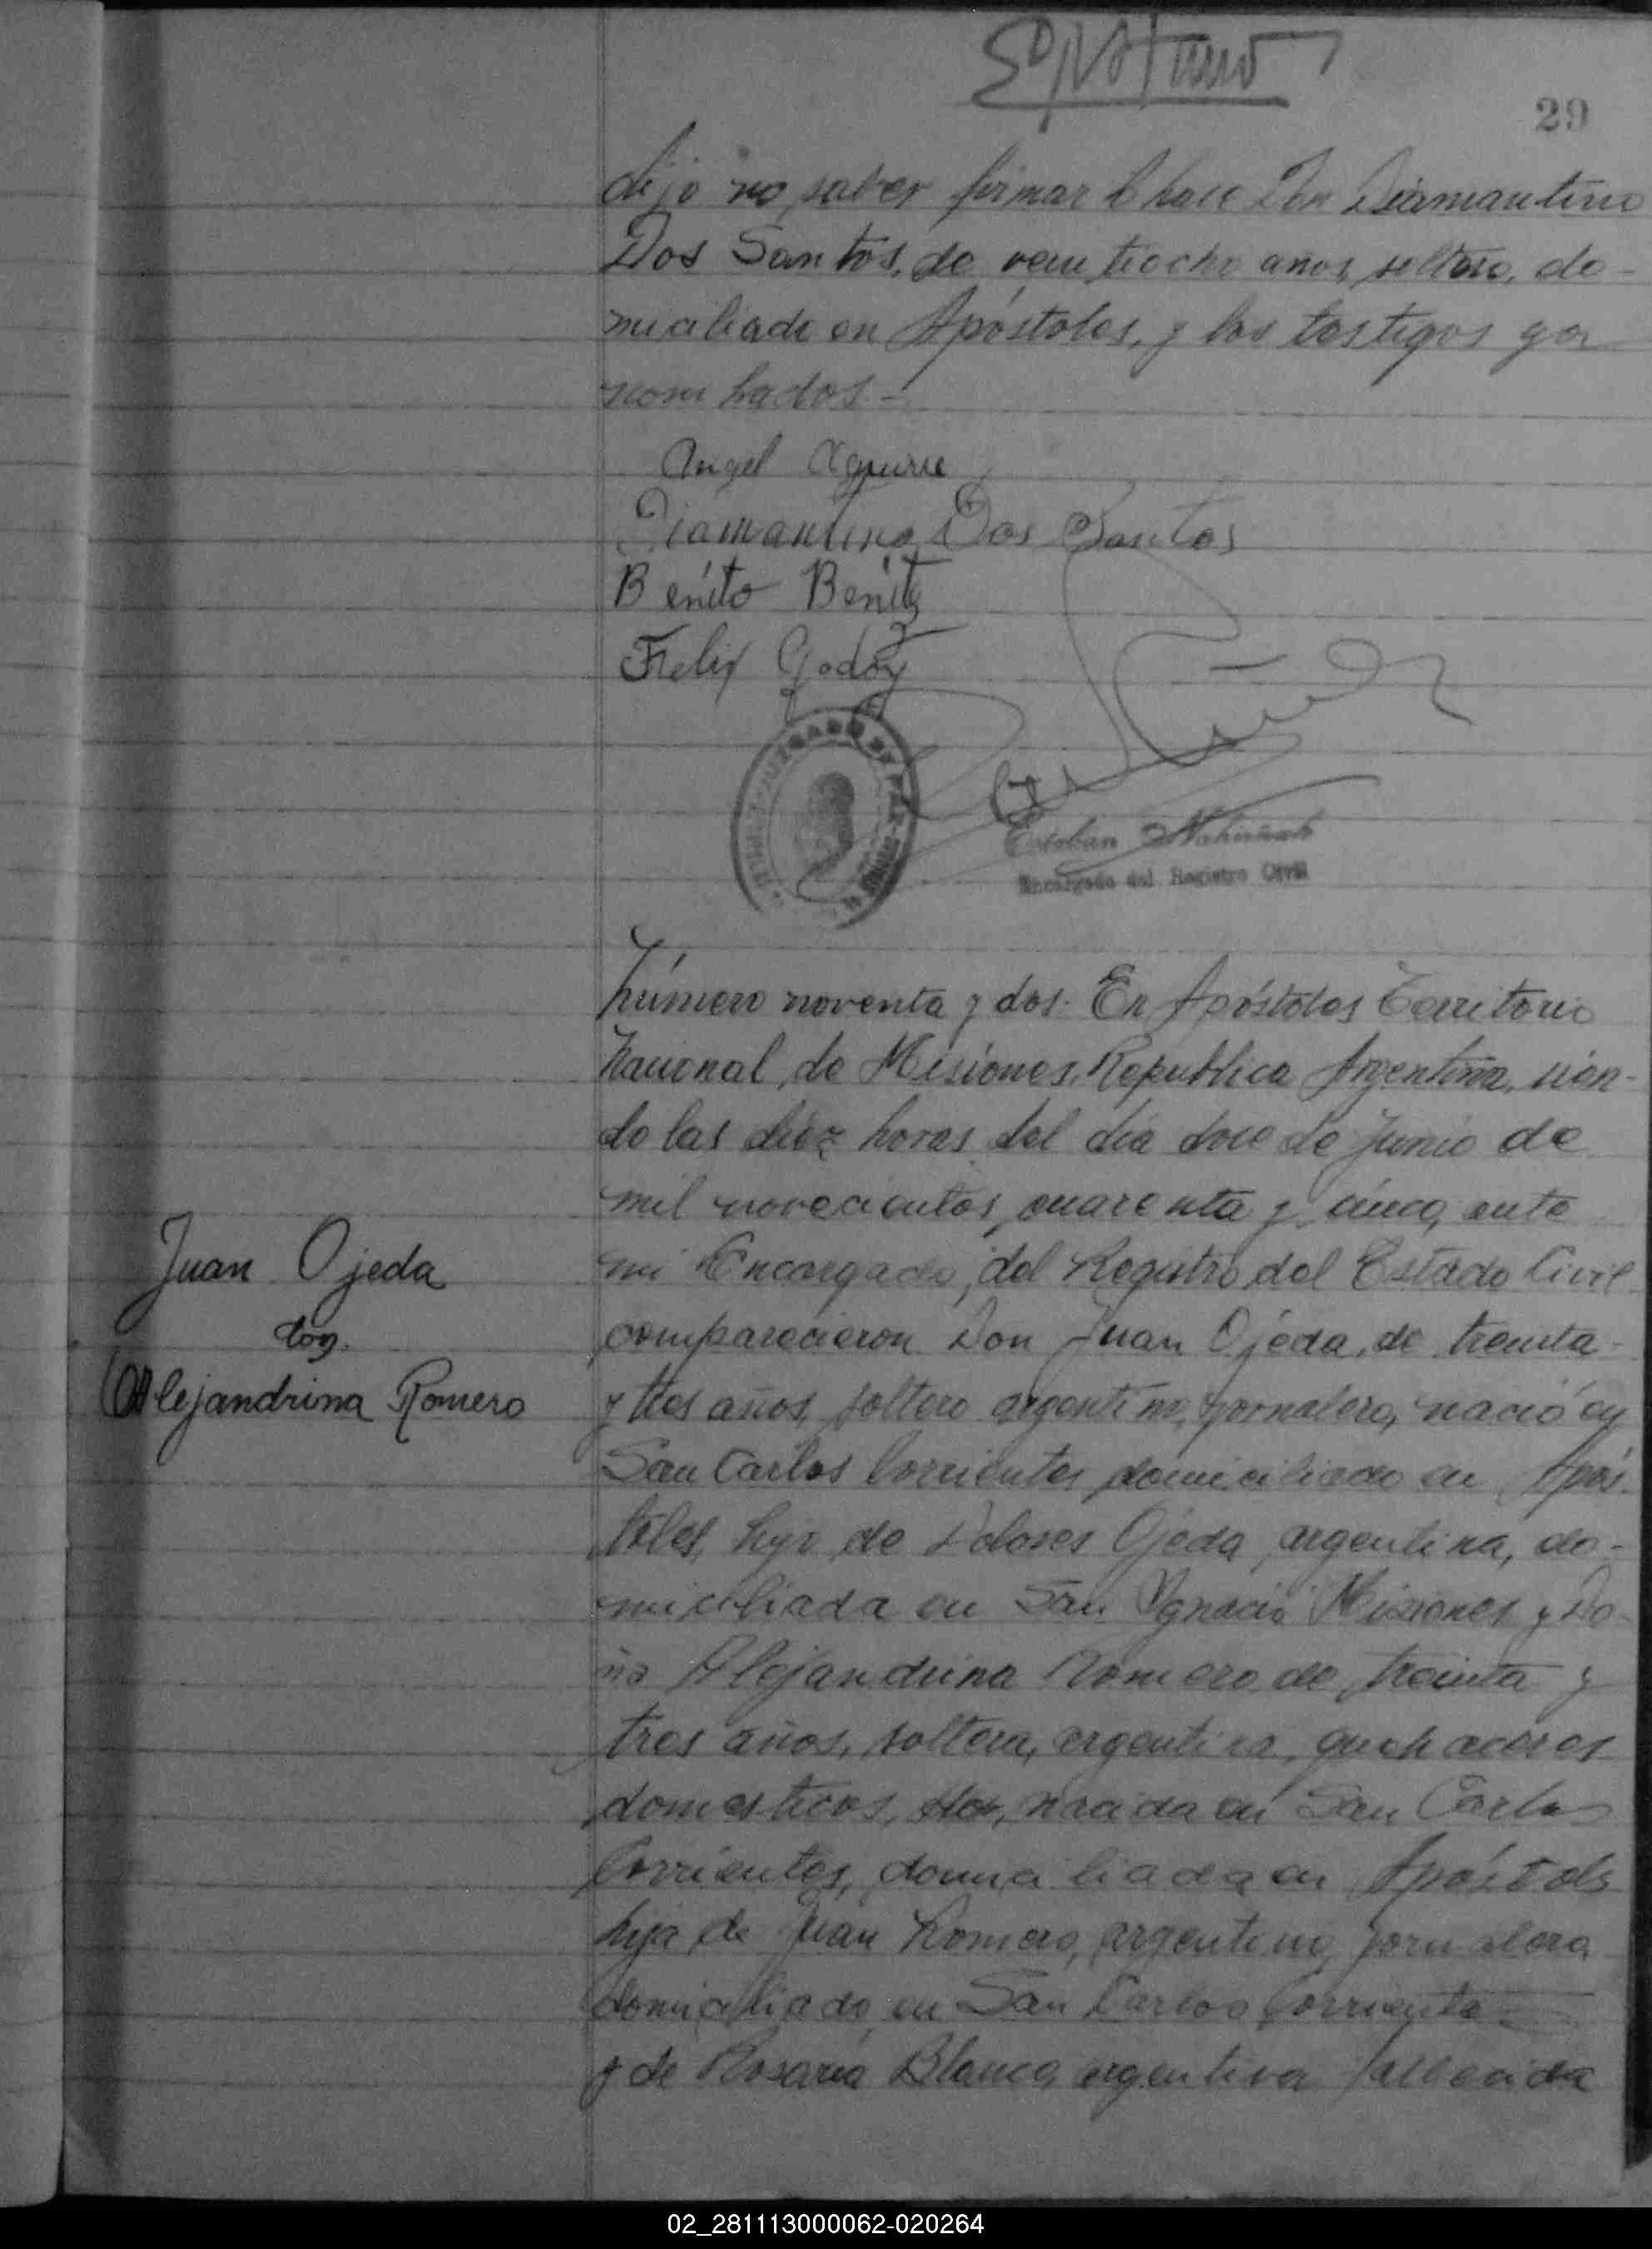 29
dijo no saber firmar lo hace Don Diamantino
Dos Santos, de veintiocho años, soltero, do-
miciliado en Apóstoles, y los testigos ya
nombrados.-
Angel Aguirre
Diamantino Dos Santos
Benito Benitz
Felix Godoy
JUZGADO DE PAZ
Esteban
Encargado del Registro Civil
Número noventa y dos. En Apóstoles Territorio
Nacional de Misiones, República Argentina, sien-
do las diez horas del día doce de Junio de
mil novecientos cuarenta y cinco, ante
mi Encargado, del Registro del Estado Civil
comparecieron Don Juan Ojeda, de treinta
y tres años, soltero argentino, jornalero, nació en
San Carlos Corrientes domiciliado en Após-
toles, hijo de Dolores Ojeda, argentina, do-
miciliada en San Ygnacio Misiones y Do-
ña Alejandrina Romero de treinta y
tres años, soltera, argentina, quehaceres
domesticos, nacida en San Carlos
Corrientes, domiciliada en Apóstols
hija de Juan Romero, argentino, jornalero,
domiciliado en San Carlos Corrientes
y de Rosaria Blanco, argentina fallecida
Juan Ojeda
con
Alejandrina Romero
02_281113000062-020264